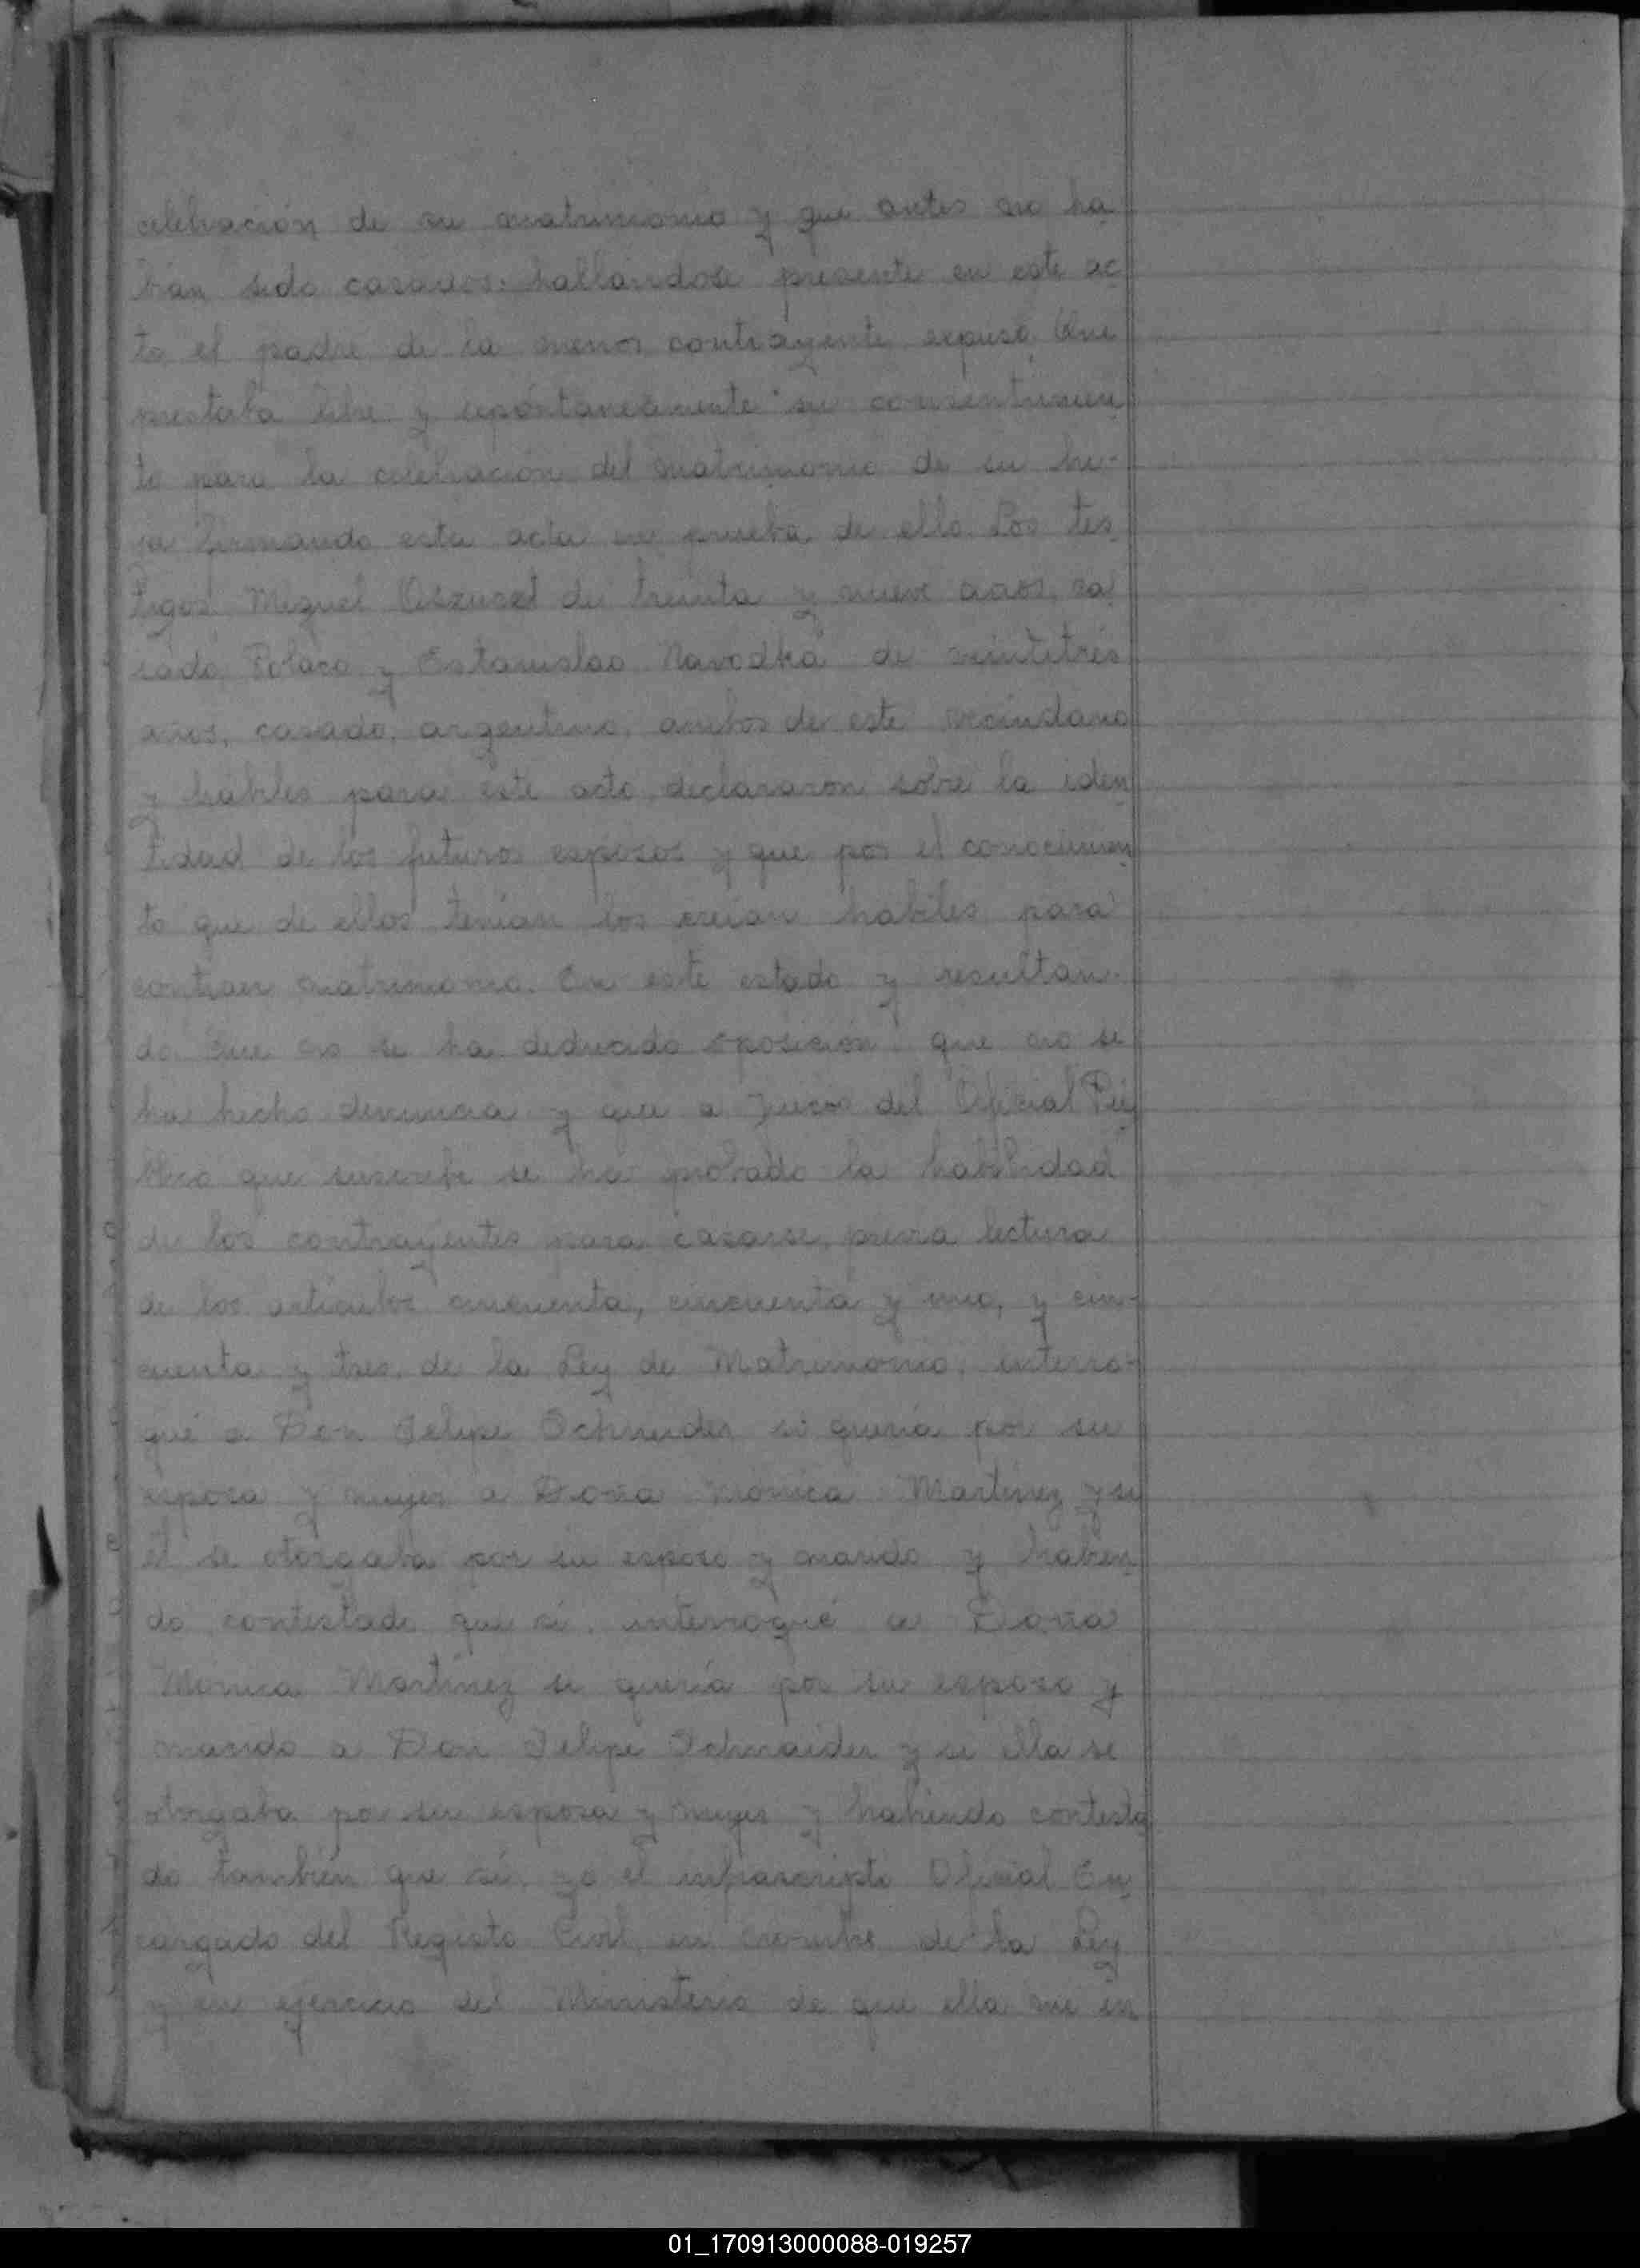 celebración de su matrimonio y que antes no ha
bían sido casados. hallandose presente en este ac
to el padre de la menor contrayente expuso Que
prestaba libre y espóntaneamente su consentimien
to para la celebración del matrimonio de su hi-
ja firmando esta acta en prueba de ello. Los tes
tigos Miguel de treinta y nueve años, ca
sado Polaco y Estanislao Navodka de veintitrés
años, casado, argentino, ambos de este vecindario
y hábiles para este acto, declararon sobre la iden
tidad de los futuros esposos y que por el conocimien
to que de ellos tenían los creían habiles para
contraer matrimonio. En este estado y resultan-
do que no se ha deducido oposición que no se
ha hecho denuncia y que a juicio del Oficial Pú
blico que suscribe se ha probado la habilidad
de los contrayentes para casarse, previa lectura
de los artículos cincuenta, cincuenta y uno, y cin-
cuenta y tres, de la Ley de Matrimonio, interro-
gué a Don Felipe Schneider si quería por su
esposa y mujer a Doña Mónica Martinez y si
él se otorgaba por su esposo y marido y habien
do contestado que sí, interrogué a Doña
Mónica Martínez si quería por su esposo y
marido a Don Felipe Schnaider y si ella se
otorgaba por su esposa y mujer y habiendo contesta
do también que sí, yo el infrascripto Oficial En
cargado del Registo Civil, en nombre de la Ley
y en ejercicio del Ministerio de que ella me in
01_170913000088-019257